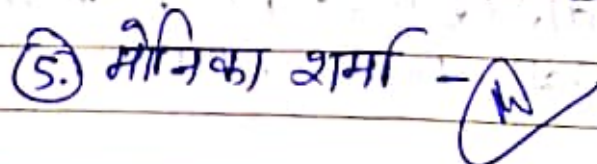 5. मोनिका शर्मा -